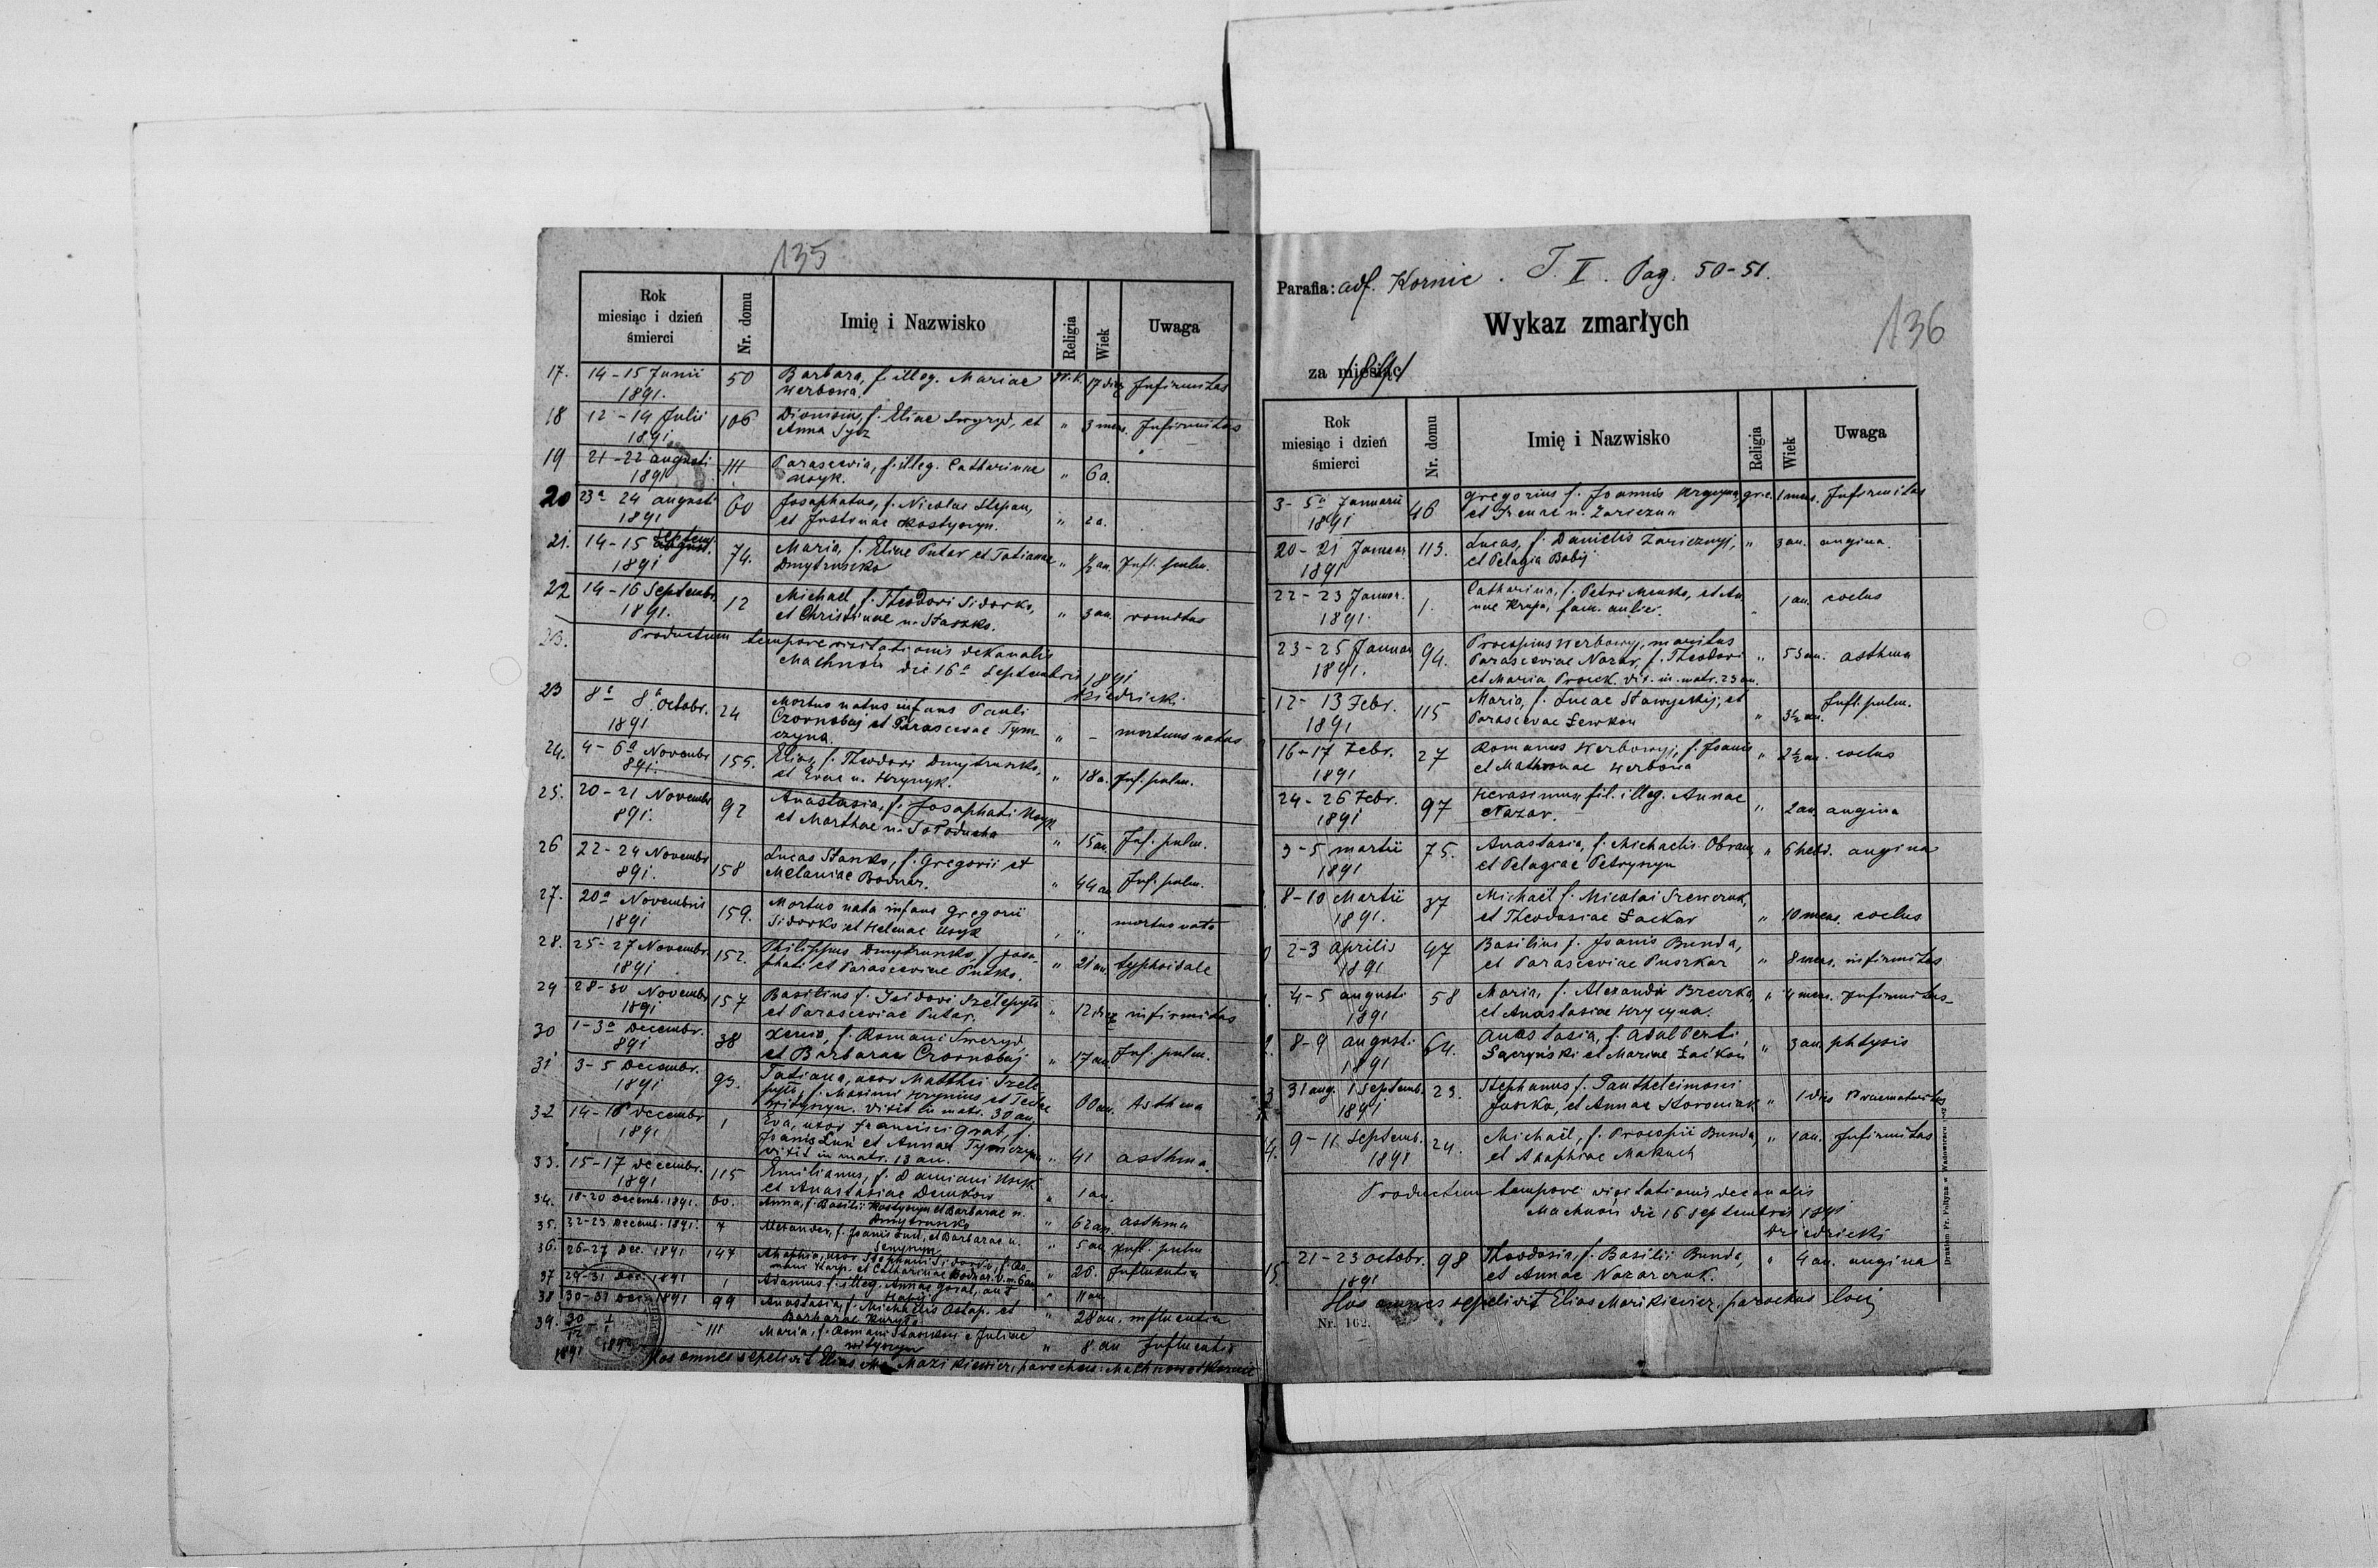 135
Rok miesiąc i dzień śmierci | Nr. domu | Imię i Nazwisko | Religia | Wiek | Uwaga
17. 14-15 Junii 50 Barbara, f. illeg. Mariae gr.k. 17 dies Infirmitas
1891. Werbowa.
18 12-14 Julii 106 Dionisia, f. Eliae et " 3 mens. Infirmitas
1891 Anna
19 21-22 augusti 111 Parascevia, f. illeg. Catharinae " 6 a.
1891 Usyk.
20 23a 24 augusti 60 Josaphatus, f. Nicolai Stepan, " 2 a.
1891 et Justinae Kostyszyn.
21. 14-15 Septemb. 74. Maria, f. Eliae Putar et Tatianae " ½ an. Infl. pulm.
1891 Dmytrusczko
22 14-16 Septembr. 12 Michael, f. Theodori Sidorko, " 3 an. vomitus
1891. et Christinae n. Staszko.
23. Productum tempore visitationis dekanalis
Machnów die 16a Septembris 1891
Dziedzicki.
23 8a 8a octobr. 24 Mortuo natus infans Pauli " - mortuus natus
1891 Czornobaj et Parascevae Tym-
czyna.
24. 4-6a Novembr 155. Elias, f. Theodori Dmytrusczko, " 18 a. Inf. pulm.
891. et Evae n. Hrynyk.
25. 20-21 Novembr 92 Anastasia, f. Josaphati Usyk " 15 an. Inf. pulm.
891. et Marthae n. Sołoducha
26 22-24 Novembr 158 Lucas Stasko, f. Gregorii et " 44 an Inf. pulm.
891. Melaniae Bodnar.
27. 20a Novembris 159. Mortuo nata infans Gregorii " " mortuo nata
1891 Sidorko et Helenae Usyk
28. 25-27 Novembr 152. Philippus Dmytrusko, f. Josa- " 21 an. typhoidale
1891 phati et Parasceviae Pusko.
29 28-30 Novembr 157 Basilius f. Isidori Szelepyło " 12 dies infirmitas
1891 et Parasceviae Putar.
30 1-3a Decembr. 38 Xenia, f. Romani Sweryd, " 17 an Inf. pulm.
891 et Barbarae Czornobaj
31 3-5 Decembr. 93. Tatiana, uxor Matthei Szele- 60 an. Asthma
1891 pyło, f. Maximi Hrynius et Teclae
Wityszyn. vixit in matr. 30 an.
32 14-16 Decembr 1 Eva, uxor Francisci Grat, f. " 41 asthma.
1891 Joanis et Annae Tymczyna
vixit in matr. 13 an.
33. 15-17 Decembr. 115 Emilianus, f. Damiani Usyk " 1 an.
1891 et Anastasiae Demkow
34. 18-20 Decemb. 1891. 60. Anna, f. Basilii Kostyszyn et Barbarae n. " 62 an asthma
Dmytrusko
35. 22-23 Decemb. 1891. 7 Alexander, f. Joanis et Barbarae n. " 5 an Infl. pulm
36. 26-27 Dec. 1891 147 Ahaphia, uxor Stephani Sidorko, f. Ro- " 26. Influentia
mani Karp. et Catharinae Bodnar. V. m. 6 an
37 29-31 Dec. 1891 1 Adamus f. illeg. Annae Goral, " 11 an
38 30-31 Dec. 1891 99 Anastasia, f. Michaelis Ostap. et " 28 an. influentia
Barbarae Kuryło
39. 30/12 - 1/1 111 Maria, f. Romani Staszków e Juliae " 8 an Influentia
1891 1892 Wityszyn
Hos omnes sepelivit Elias Mazikiewicz, parochus: Machnow et Kornie
Parafia: adf. Kornie. T. II. Pag. 50-51.
136
Wykaz zmarłych
za miesiąc 1891
Rok miesiąc i dzień śmierci | Nr. domu | Imię i Nazwisko | Religia | Wiek | Uwaga
3-5a Januarii 46 Gregorius f. Joannis Hrycyna, gr.c. 1 mens. Infirmitas
1891 et Irenae n. Zariczn"
20-21 Januar 113. Lucas, f. Danielis Zaricznyj, " 3 an. angina.
1891 et Pelagia Babij
22-23 Januar. 1. Catharina, f. Petri Menko, et An- " 1 an. coclus
1891. nae Krupa, fam. aulici.
23-25 Januar 94. Procopius Werbowy, maritus " 53 an. asthma
1891. Parasceviae Nazar, f. Theodori
et Maria Procek. vix. in. matr. 23 an.
12-13 Febr. 115 Maria, f. Lucae Stawyckij, et " 3½ an. Infl. pulm.
1891 Parascevae Lewkow
16-17 Febr. 27 Romanus Werbowyj, f. Joanis " 2½ an. coclus
1891 et Mathronae Werbowa
24-26 Febr. 97 Herasimus fil. illeg. Annae " 2 an angina
1891 Nazar.
3-5 martii 75. Anastasia, f. Michaelis Obram " 6 hebd. angina
1891 et Pelagiae Petryszyn
8-10 Martii 37 Michaël f. Nicolai Szewczuk, " 10 mens. coclus
1891. et Theodosiae Łackar
2-3 Aprilis 47 Basilius f. Joanis Bunda, " 8 mens. infirmitas
1891 et Parasceviae Puszkar
4-5 augusti 58 Maria, f. Alexandri " 4 mens. Infirmitas
1891 et Anastasiae Hrycyna.
8-9 augusti 64. Anastasia, f. Adalberti, " 3 an. phtysis
1891 Sączyński et Mariae Lackow
31 aug. 1 Septemb. 23. Stephanus f. Pantheleimoni " 1 dies Praematuritas
1891 Juszko, et Annae Storoniak
9-11 Septemb. 24. Michaël, f. Procopii Bunda, " 1 an. Infirmitas
1891 et Ahaphiae Makuch
Productum tempore visitationis decanalis
Machnów die 16 septembris 1891
Dziedzicki
15. 21-23 octobr. 98 Theodosia, f. Basilii Bunda, " 4 an. angina
1891 et Annae Nazarczuk.
Hos omnes sepelivit Elias Mazikiewicz, parochus loci
Nr. 162.
Drukiem Fr. Foltyna w Wadowicach